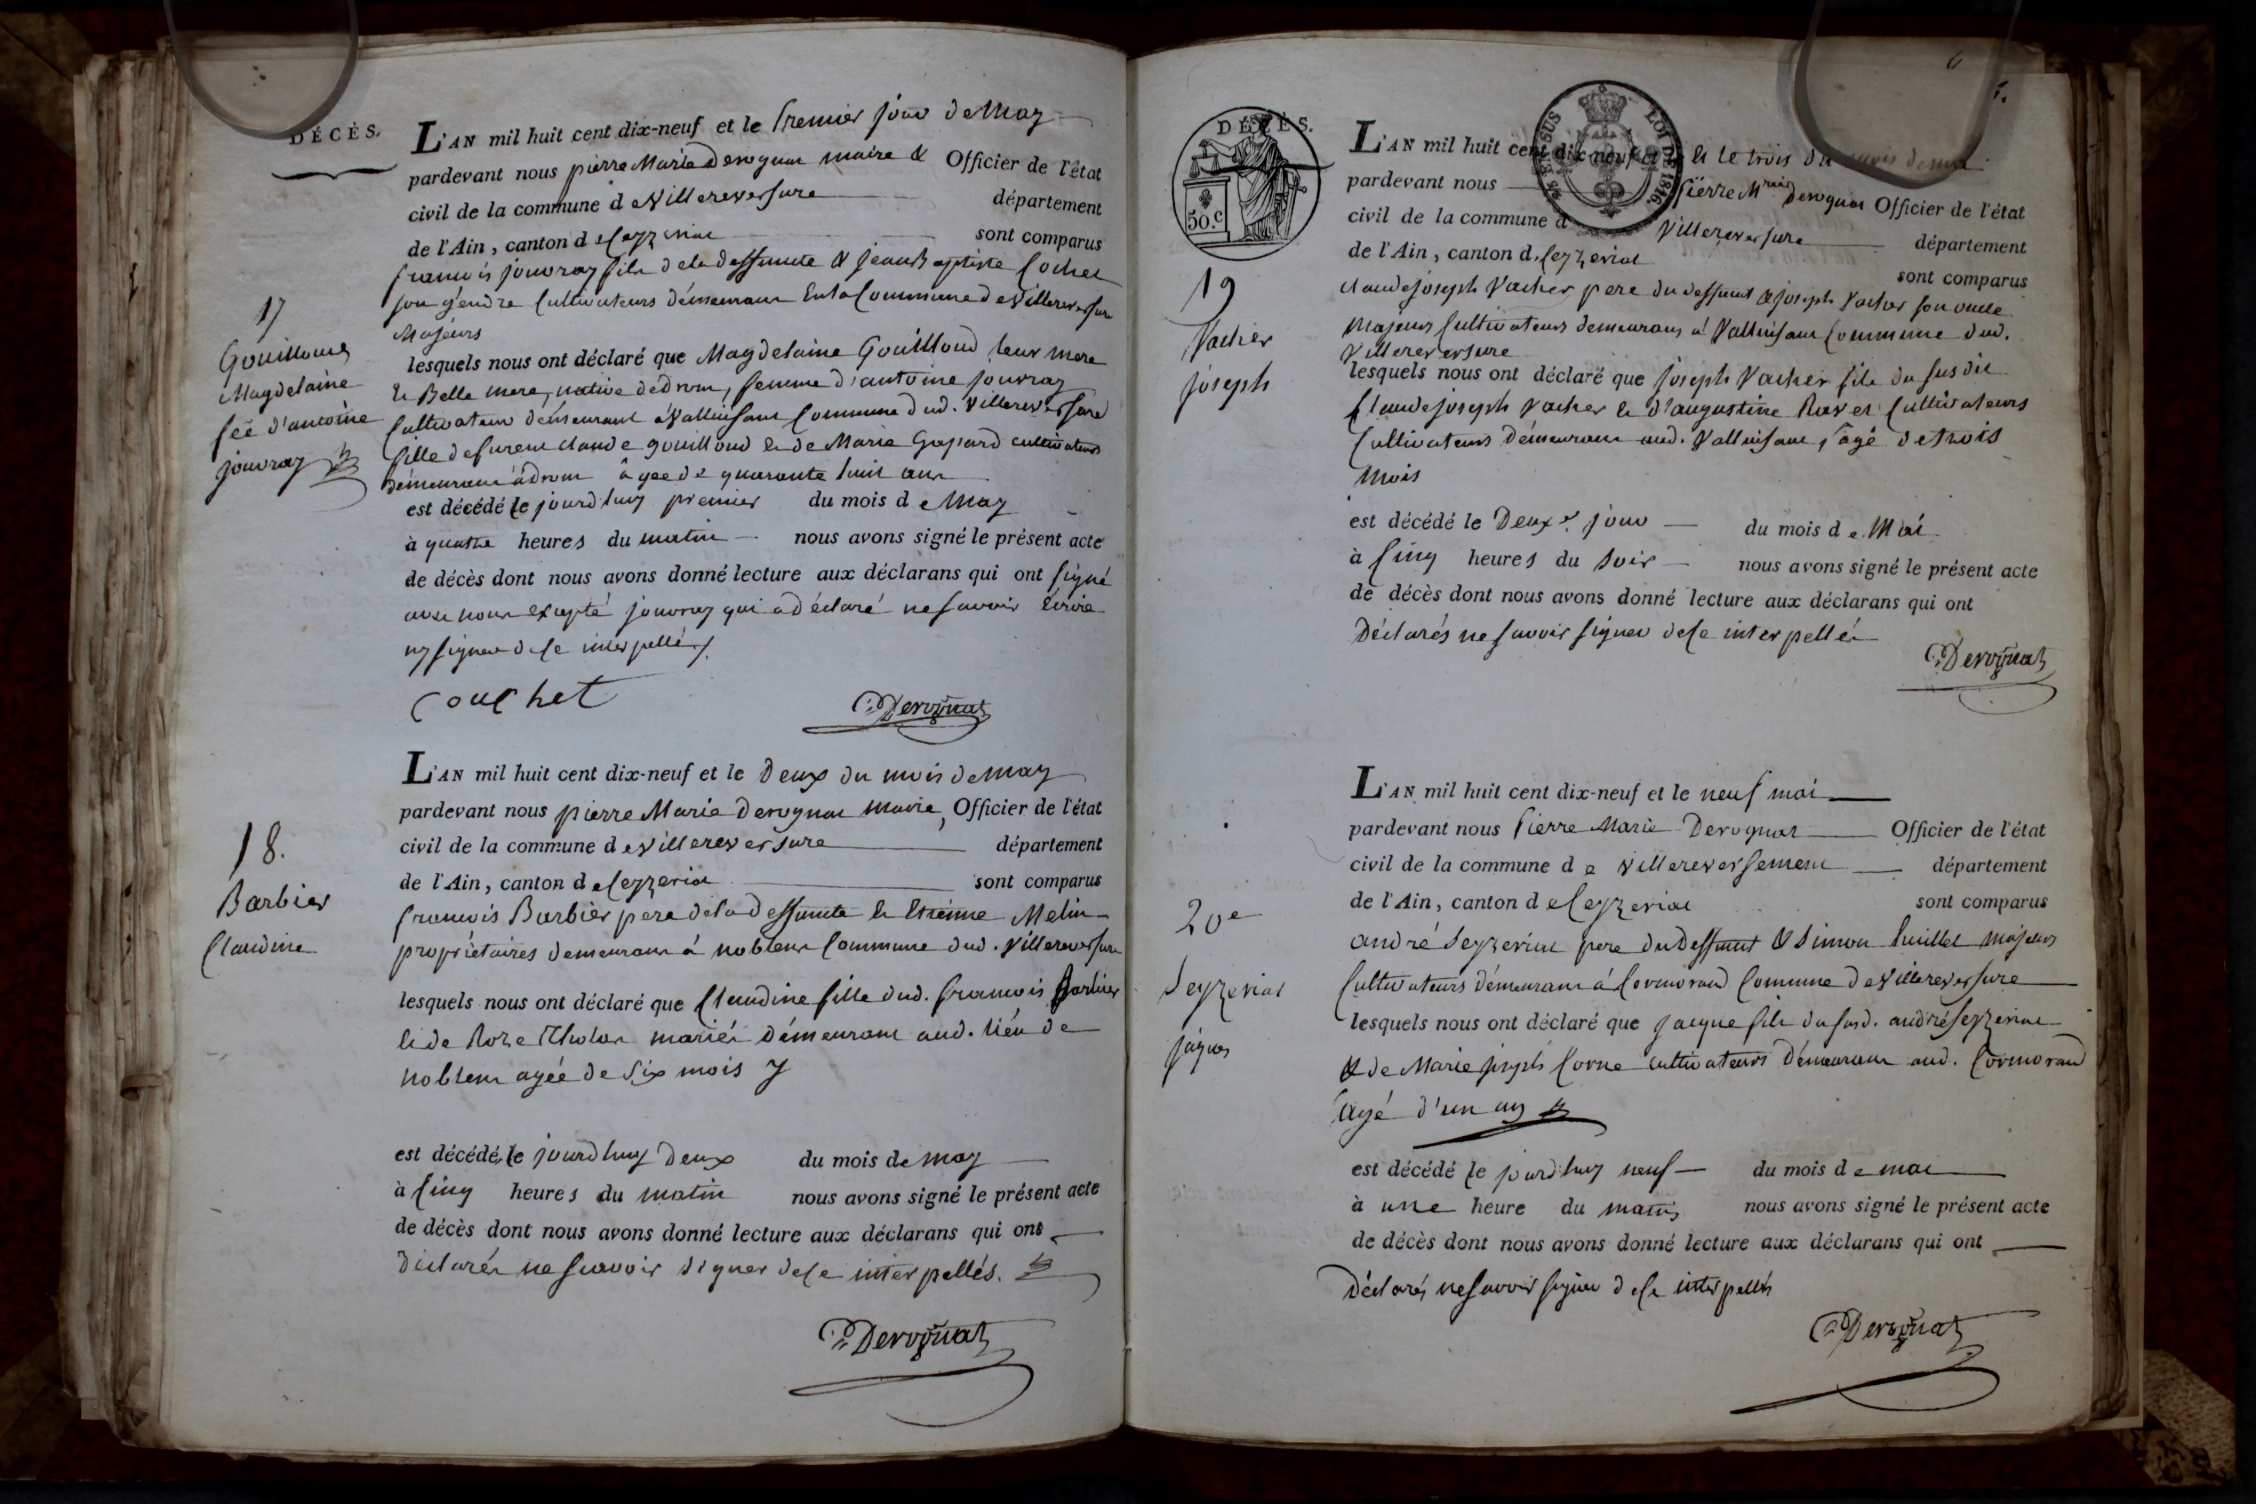 DÉCÈS.
L'AN mil huit cent dix-neuf et le premier jour de May
pardevant nous pierre Marie Derognat maire & Officier de l'état
civil de la commune de Villereversure département
de l'Ain, canton de Ceyzeriat sont comparus
francois jouvray fils de la deffuncte & jean Baptiste Cochet
son gendre Cultivateurs démeurant En la Commune de Villereversure
Majeurs
17
Gouilloud
Magdelaine
fée d'antoine
jouvray
lesquels nous ont déclaré que Magdelaine Gouilloud leur mere
& Belle mere, native de drom, femme d'antoine jouvray
Cultivateur démeurant á Vallinsant Commune dud. Villereversure
fille de furent claude gouilloud & de Marie Gspard cultivateurs
démeurant á drom âgee de quarante huit ans
est décédé le jourd'huy premier du mois de May
à quatre heures du matin nous avons signé le présent acte
de décès dont nous avons donné lecture aux déclarans qui ont signé
avec nous excepté jouvray qui a déclaré ne savoir Ecrire
ny signer de ce interpellé
Couchet
Derognat
L'AN mil huit cent dix-neuf et le deux du mois de may
pardevant nous pierre Marie Derognat Maire, Officier de l'état
civil de la commune de Villereversure département
de l'Ain, canton de Ceyzeriat sont comparus
18.
Barbier
Claudine
francois Barbier pere de la deffuncte & Etienne Melin
propriétaires demeurant á noblens Commune dud. Villereversure
lesquels nous ont déclaré que Claudine fille dud. francois Barbier
& de Roze Tholon mariés démeurant aud. lieu de
noblens agée de Six mois
est décédé le jourd'huy deux du mois de may
à Cinq heures du matin nous avons signé le présent acte
de décès dont nous avons donné lecture aux déclarans qui ont
déclarés ne scavoir signer de ce interpellés.
Derognat
DÉCÈS.
50.C
LOI DE 1816.
L'AN mil huit cent dix-neuf et le trois du mois de mai
pardevant nous Pierre Mrie Derognat Officier de l'état
civil de la commune d Villereversure département
de l'Ain, canton de Ceyzeriat sont comparus
claude joseph Vacher pere du deffunct & joseph Vacher son oncle
Majeurs Cultivateurs demeurans á Vallinsant Commune dud.
Villereversure
19
Vacher
joseph
lesquels nous ont déclaré que joseph Vacher fils du susdit
Claude joseph Vacher & d'augustine Ravet Cultivateurs
Cultivateurs démeurant aud. Vallinsant, âgé de trois
Mois
est décédé le Deuxe. jour du mois de Mai
à Cinq heures du Soir nous avons signé le présent acte
de décès dont nous avons donné lecture aux déclarans qui ont
Déclarés ne savoir signer de ce interpellés
Derognat
L'AN mil huit cent dix-neuf et le neuf mai
pardevant nous Pierre Marie Derognat Officier de l'état
civil de la commune de Villereversement département
de l'Ain, canton de Ceyzeriat sont comparus
20e
Seyzeriat
jaques
andré Seyzeriat pere du Deffunct & Simon huillet majeurs
Cultivateurs démeurant á Cormorand Commune de Villereversure
lesquels nous ont déclaré que jacque fils du susd. andré Seyzeriat
& de Marie joseph Corne cultivateurs démeurant aud. Cormorand
agé d'un an
est décédé le jourd'huy neuf du mois de mai
à une heure du matin nous avons signé le présent acte
de décès dont nous avons donné lecture aux déclarans qui ont
Déclarés ne savoir signer de ce interpellés
Derognat